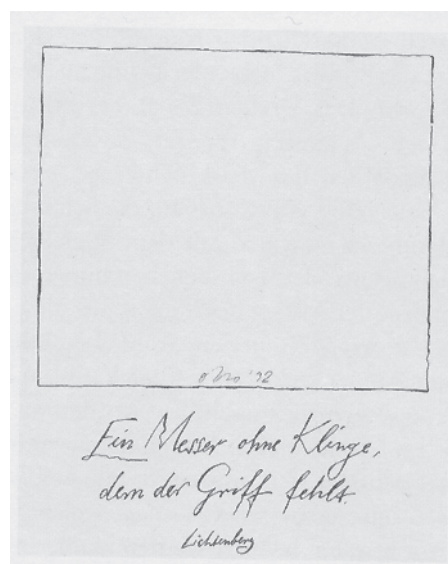 '92
Ein Messer ohne Klinge,
dem der Griff fehlt.
Lichtenberg